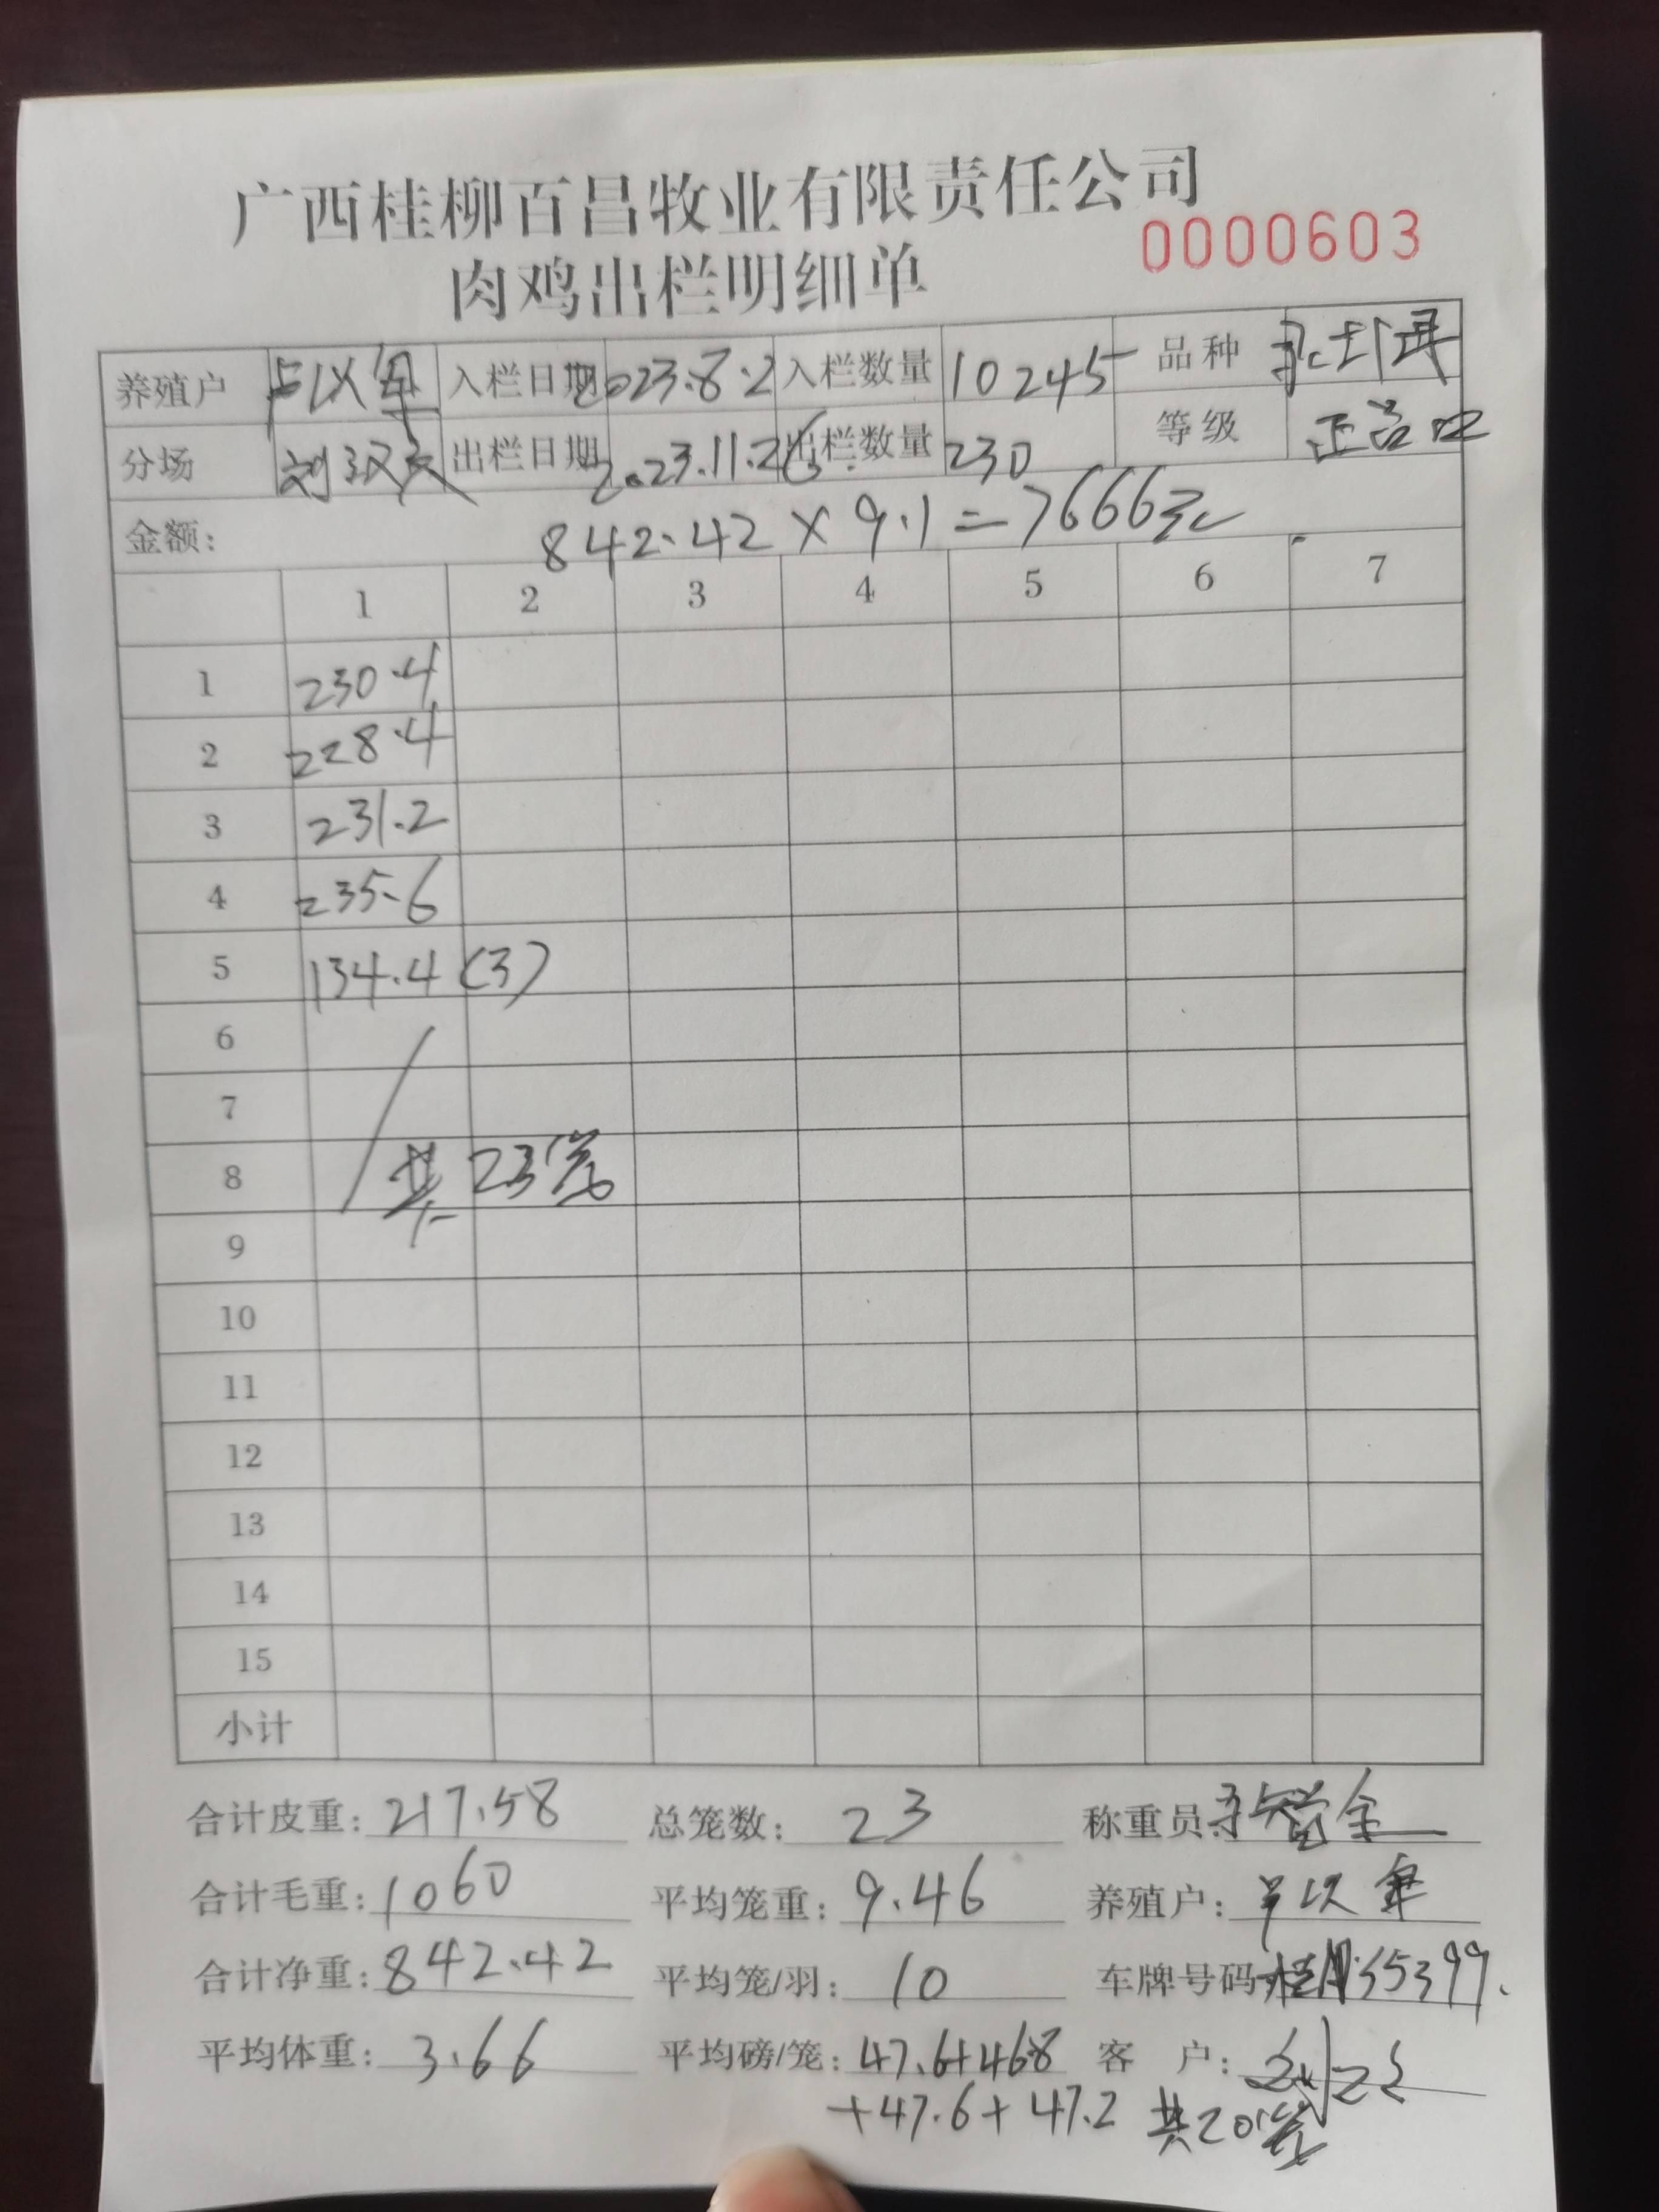 广西桂柳百昌牧业有限责任公司
0000603
肉鸡出栏明细单
养殖户 卢以军 入栏日期 2023.8.2 入栏数量 10245 品种
分场 刘汉文 出栏日期 2023.11.26 出栏数量 230 等级 正品
金额: 842.42 × 9.1 = 7666元
1 2 3 4 5 6 7
1 230.4
2 228.4
3 231.2
4 235.6
5 134.4 (3)
6
7
8 共23笼
9
10
11
12
13
14
15
小计
合计皮重: 217.58 总笼数: 23 称重员:
合计毛重: 1060 平均笼重: 9.46 养殖户:
合计净重: 842.42 平均笼/羽: 10 车牌号码
平均体重: 3.66 平均磅/笼: 47.6+46.8 客 户:
+47.6+47.2 共20笼